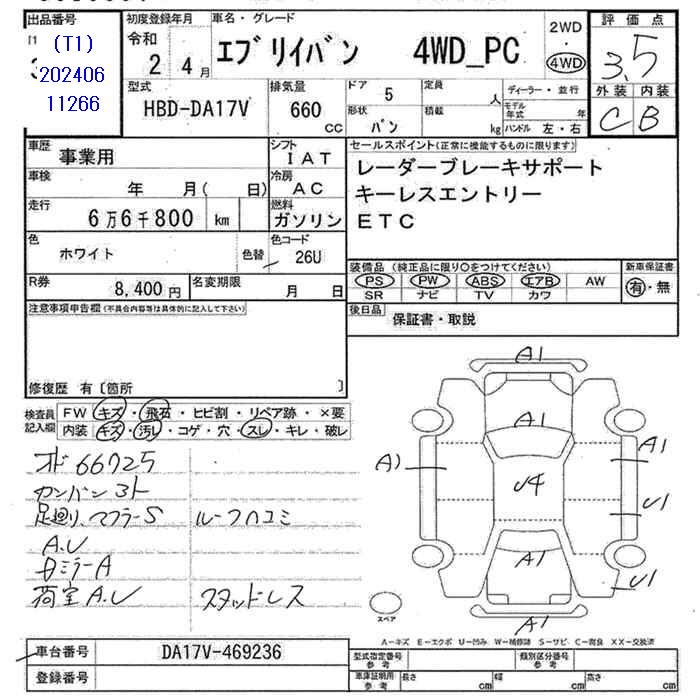 出品番号
(T1)
202406
11266
初度登録年月
令和
2 4月
車名・グレード
エブリイバン 4WD_PC
2WD
・
4WD
評価点
3.5
外装 内装
C B
型式
HBD-DA17V
排気量
660
CC
ドア
5
形状
バン
定員
人
積載
kg
ディーラー・並行
モデル年式 年
ハンドル 左・右
車歴
事業用
シフト
IAT
車検
年 月( 日)
冷房
AC
走行
6万6千800 km
燃料
ガソリン
色
ホワイト
色替
色コード
26U
セールスポイント(正常に機能するものに限ります)
レーダーブレーキサポート
キーレスエントリー
ETC
装備品(純正品に限り○をつけてください)
PS PW ABS エアB AW
SR ナビ TV カワ
新車保証書
有・無
R券
8,400円
名変期限
月 日
後日品
保証書・取説
注意事項申告欄(不具合内容等は具体的に記入して下さい)
修復歴 有〔箇所 〕
検査員
記入欄
FW キズ・飛石・ヒビ割・リペア跡・×要
内装 キズ・汚レ・コゲ・穴・スレ・キレ・破レ
オド66725
カンバン
足廻り、マフラーS ルーフハコミ
A.U
ミラーA
荷室A.U スタッドレス
A1
A1
A1
A1
U4
U1
A1
U1
A1
スペア
A-キズ E-エクボ U-凹み W-補修跡 S-サビ C-腐食 XX-交換済
車台番号
DA17V-469236
登録番号
型式指定番号
参考
類別区分番号
参考
車庫証明用
参考
長さ cm 幅 cm 高さ cm